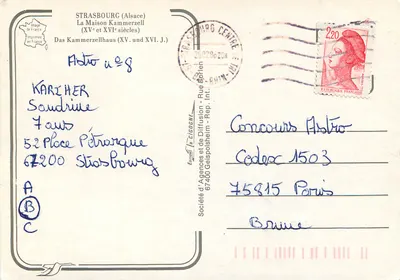 STRASBOURG (Alsace)
La Maison Kammerzell
(XVe et XVIe siècles)
Das Kammerzellhaus (XV. und XVI. J.)
Astro n° 8
KARCHER
Sandrine
7 ans
52 Place Pétrarque
67200 Strasbourg
A
B
C
Société d'Agences et de Diffusion - Rue Bofen
67400 Geispolsheim - Rep. Int.
la cigogne
STRASBOURG CENTRE
RHIN
2,20
Concours Astro
Codex 1503
75815 Paris
Brune